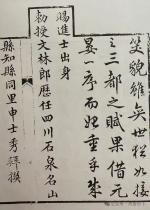 笑貌雖矣世程如接
三都之賦果借元
晏一序而始重乎哉
賜進士出身
勅授文林郎歷任四川石泉名山
縣知縣同里申士秀拜撰